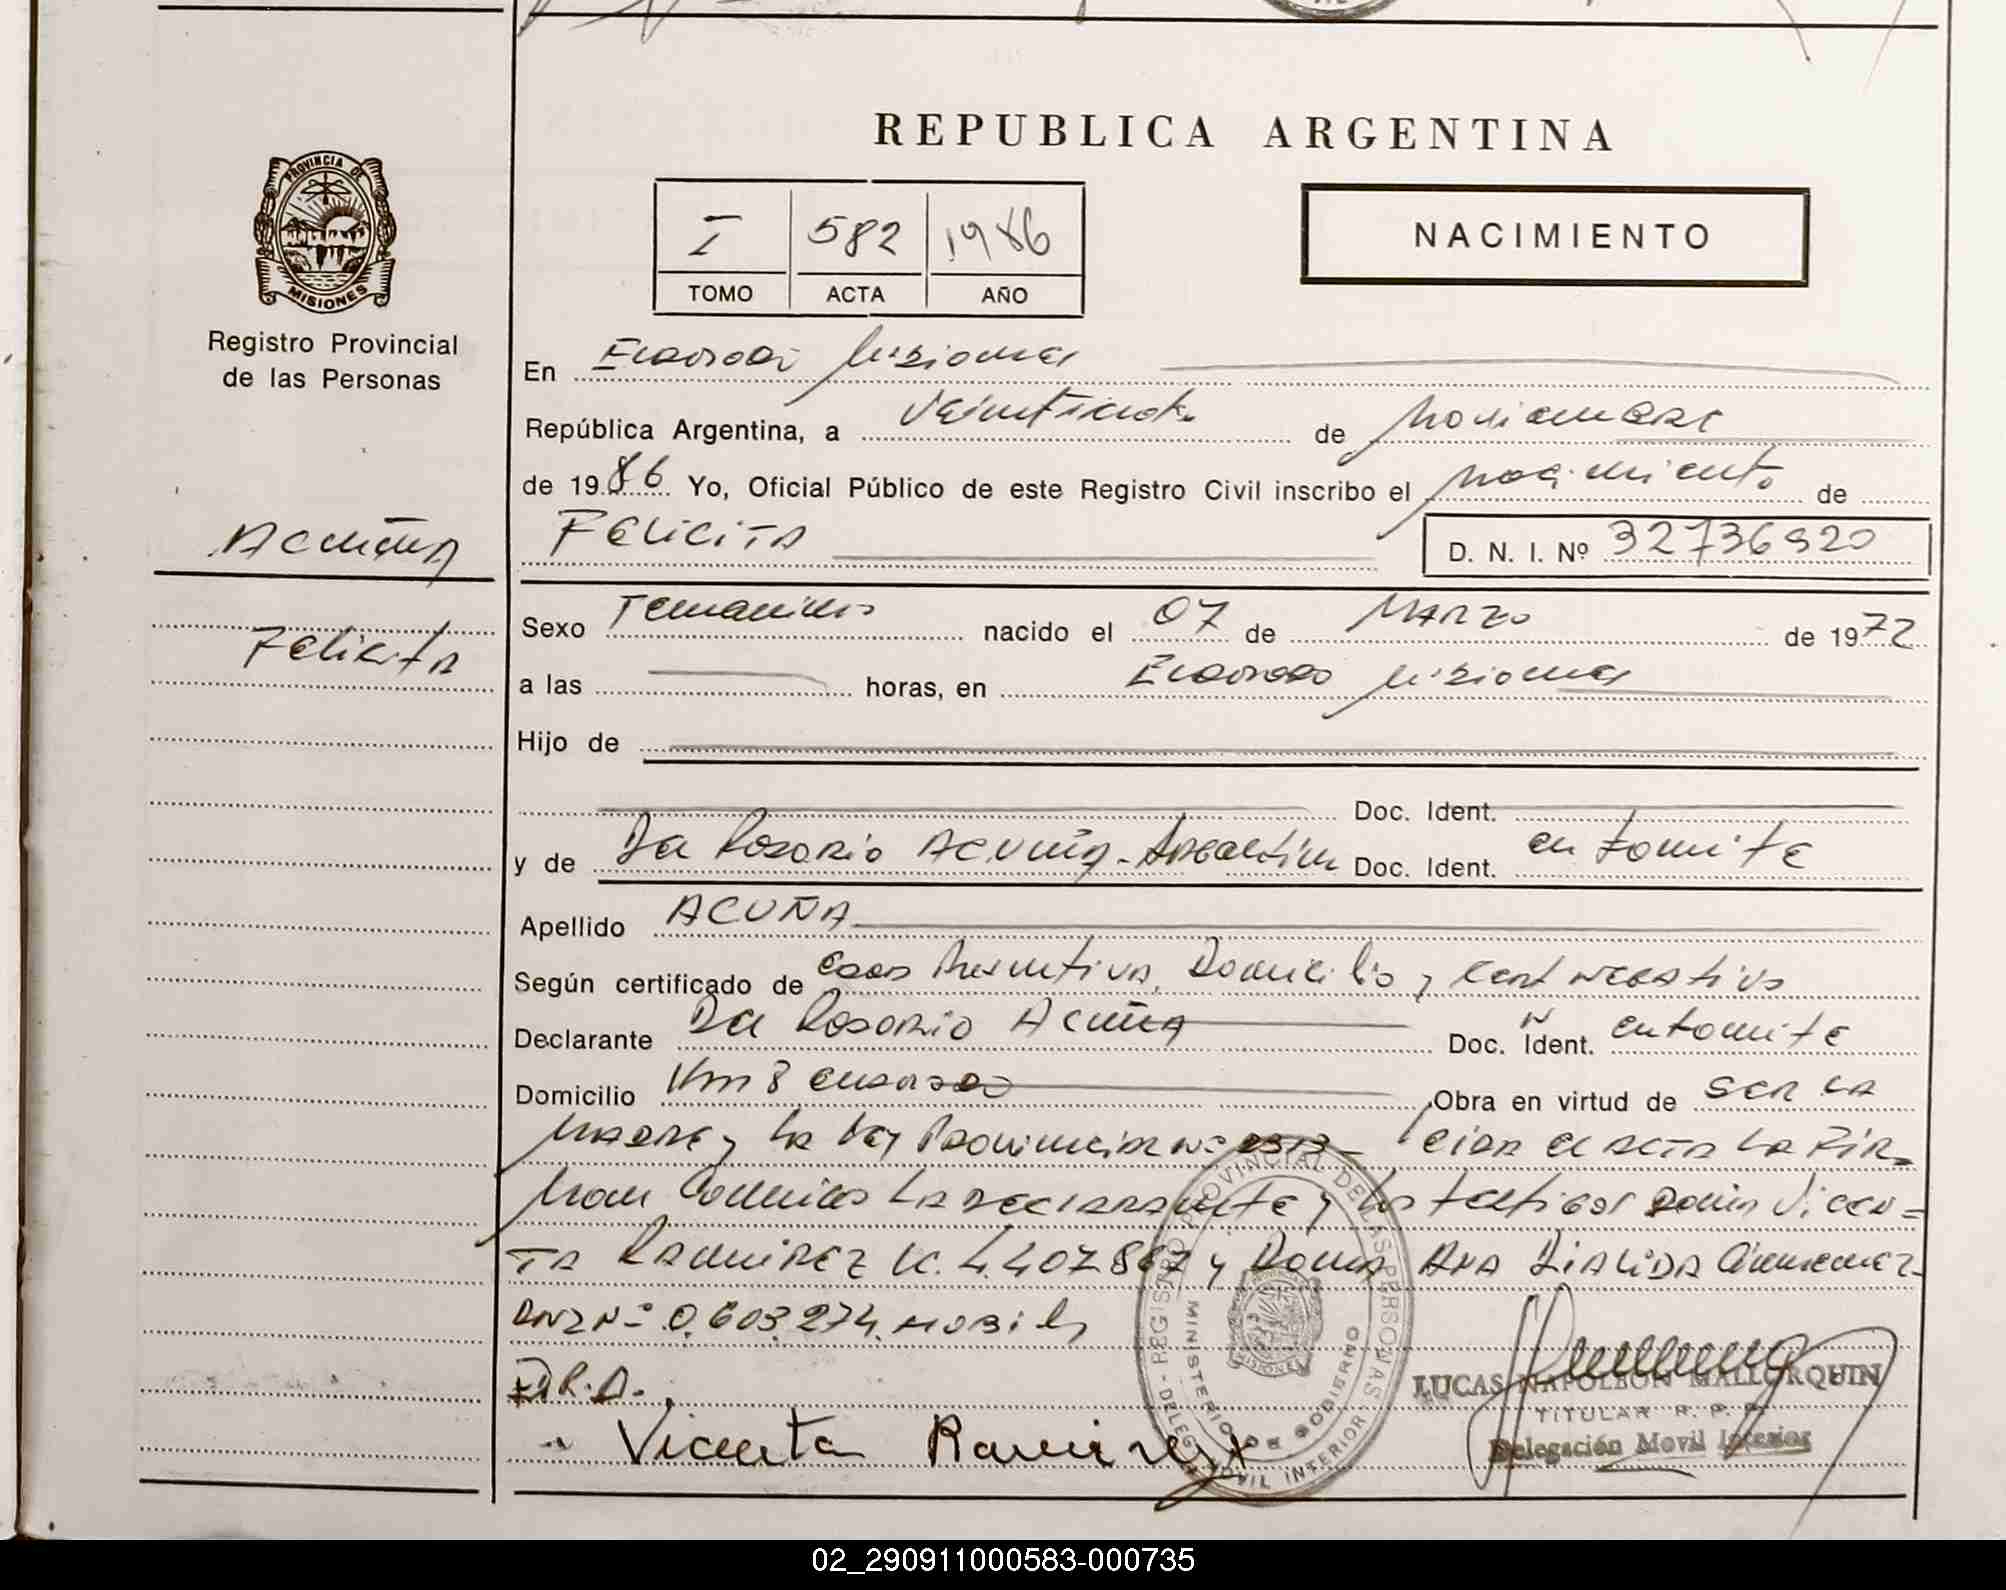 REPUBLICA ARGENTINA
PROVINCIA DE
MISIONES
Registro Provincial
de las Personas
I 582 1986
TOMO ACTA AÑO
NACIMIENTO
En Eldorado Misiones
República Argentina, a de Noviembre
de 1986 Yo, Oficial Público de este Registro Civil inscribo el Nacimiento de
ACUÑA
FELICITA
D. N. I. Nº 32736920
Felicita
Sexo Femenino nacido el 07 de MARZO de 1972
a las horas, en Eldorado Misiones
Hijo de
Doc. Ident.
y de Da Rosario Acuña - Argentina Doc. Ident. en tramite
Apellido ACUÑA
Según certificado de Edad Presuntiva, Domicilio y Cert Negativo
Declarante Da Rosario Acuña Doc. Ident. en tramite
Domicilio Km 8 Eldorado Obra en virtud de ser la
Madre y la Ley Provincial Nº Leida el acta la Fir-
man Conmigo la declarante y los testigos Doña Vicen-
ta Ramirez y Doña Ana
DNI Nº 0.603.274.
Vicenta Ramirez
REGISTRO PROVINCIAL DE LAS PERSONAS - DELEG. MOVIL INTERIOR
MINISTERIO DE GOBIERNO
MISIONES
LUCAS NAPOLEON MALLORQUIN
TITULAR R. P. P.
Delegación Movil Interior
02_290911000583-000735